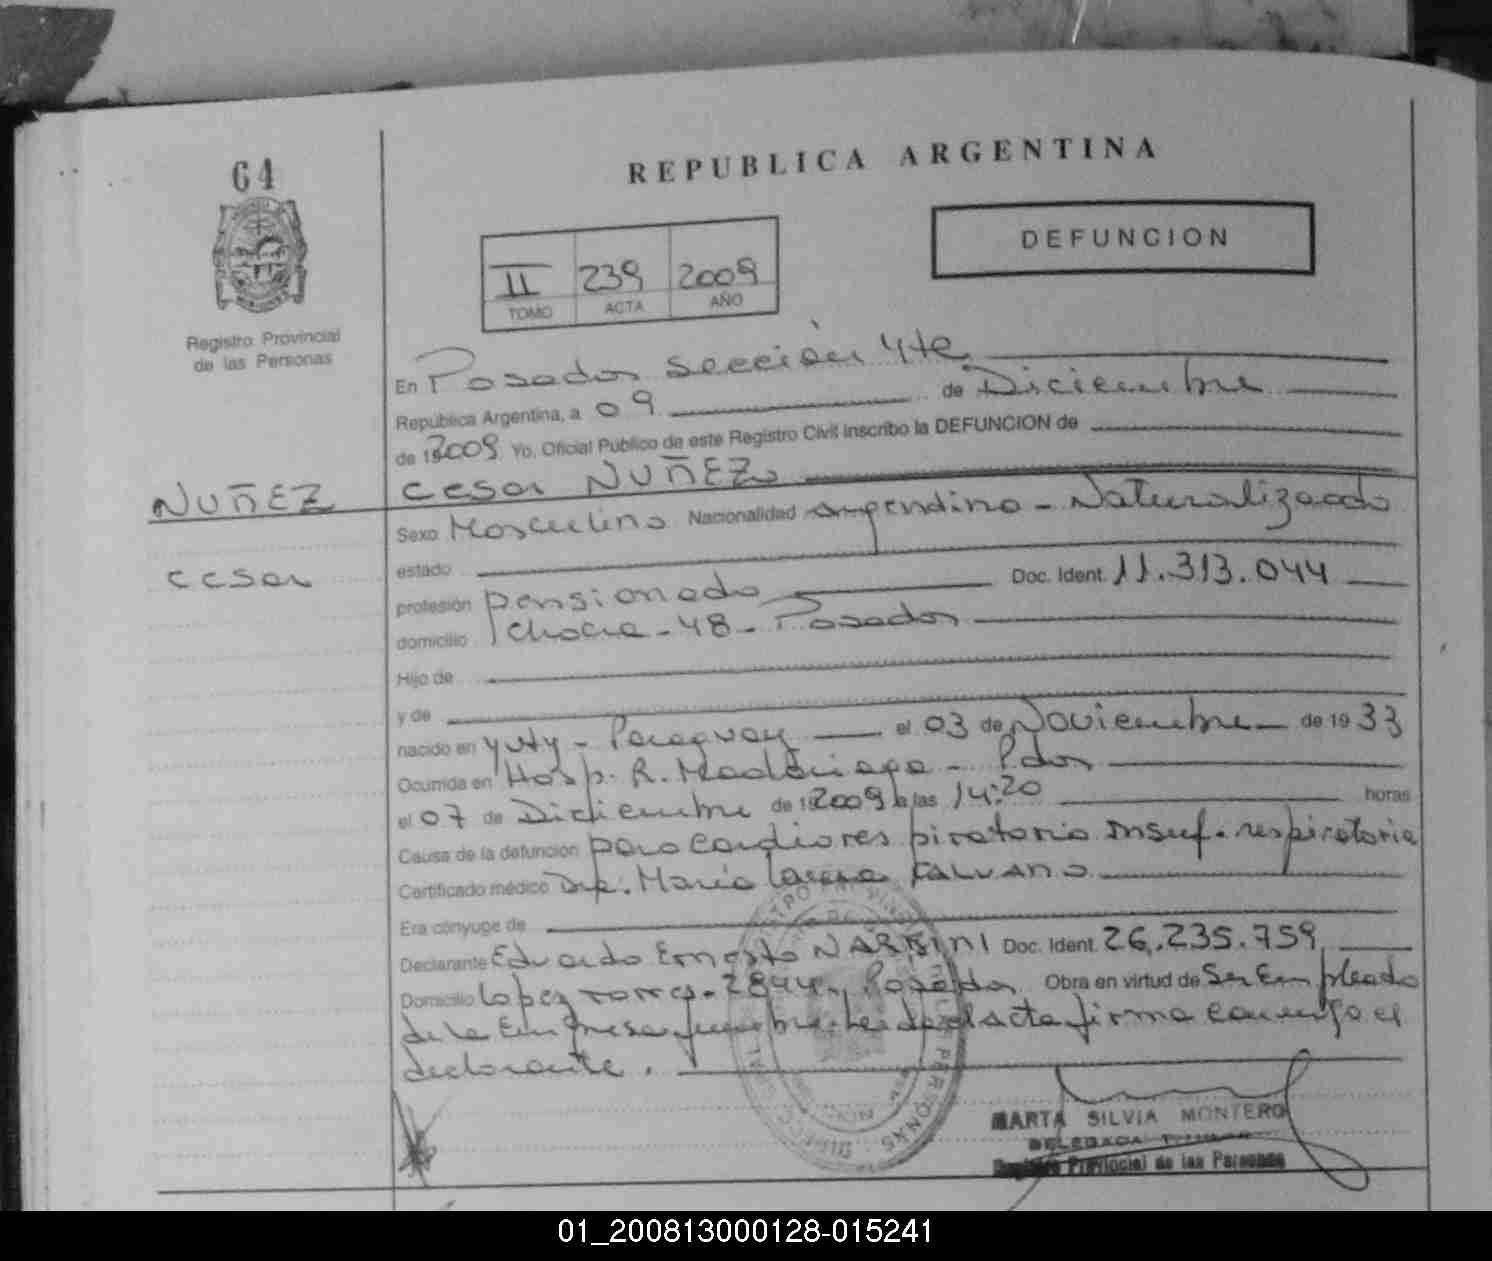 64
REPUBLICA ARGENTINA
DEFUNCION
II 239 2009
TOMO ACTA AÑO
Registro Provincial
de las Personas
En Posadas Sección 4te
República Argentina, a 09 de Diciembre
de 192009 Yo, Oficial Público de este Registro Civil inscribo la DEFUNCION de
NUÑEZ
cesar NUÑEZ
Sexo Masculino Nacionalidad argentino - Naturalizado
cesar
estado
profesión pensionado Doc. Ident. 11.313.044
domicilio - 48 - Posadas
Hijo de
y de
nacido en yuty - Paraguay el 03 de Noviembre de 1933
Ocurrida en Hosp. R. Madariaga - Pdas
el 07 de Diciembre de 192009 a las 14:20 horas
Causa de la defunción paro cardiorespiratorio Insuf. respiratoria
Certificado médico Dra. María FALVANO
Era cónyuge de
Declarante Eduardo Ernesto NARDINI Doc. Ident. 26.235.759
Domicilio Lopez torres - 2844 - Posadas Obra en virtud de Ser Empleado
de la Empresa funebre. Leida el acta firma conmigo el
declarante.
MARTA SILVIA MONTERO
DELEGADA TITULAR
Registro Provincial de las Personas
01_200813000128-015241